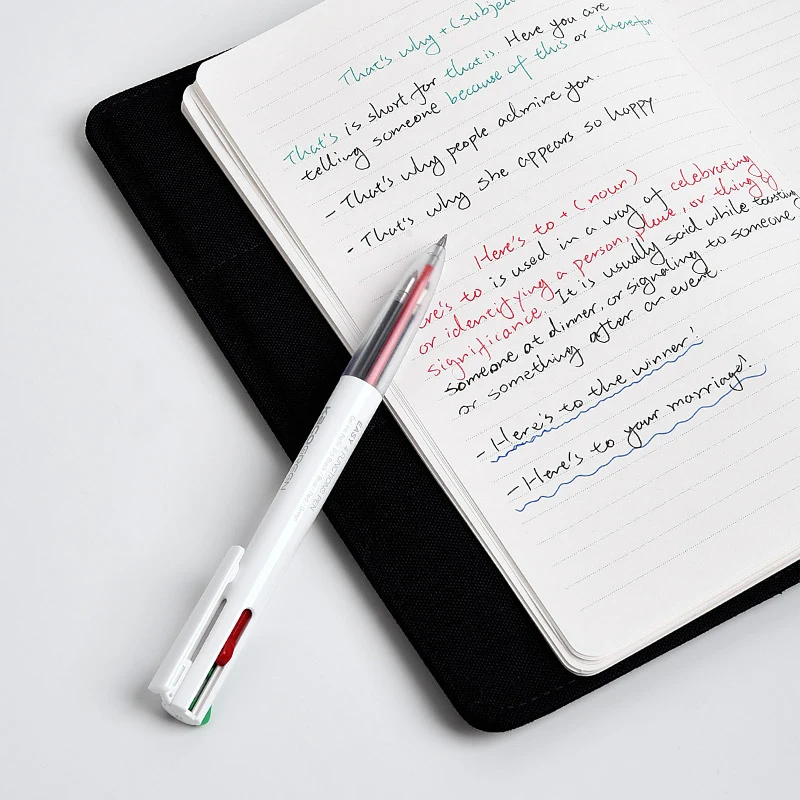 That's why + (subject
That's is short for that is. Here you are
telling someone because of this or therefor
- That's why people admire you.
- That's why she appears so happy
Here's to + (noun)
ere's to is used in a way of celebrating
or identifying a person, place, or thing of
significance. It is usually said while toasting
someone at dinner, or signaling to someone
or something after an event.
- Here's to the winner!
- Here's to your marriage!
KACOGREEN
EASY 4 FUNCTIONS PEN